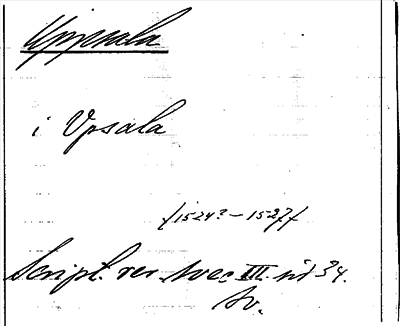 Uppsala
i Vpsala
/1524?–1527/
Script. rer. svec III. sid 34.
Sv.